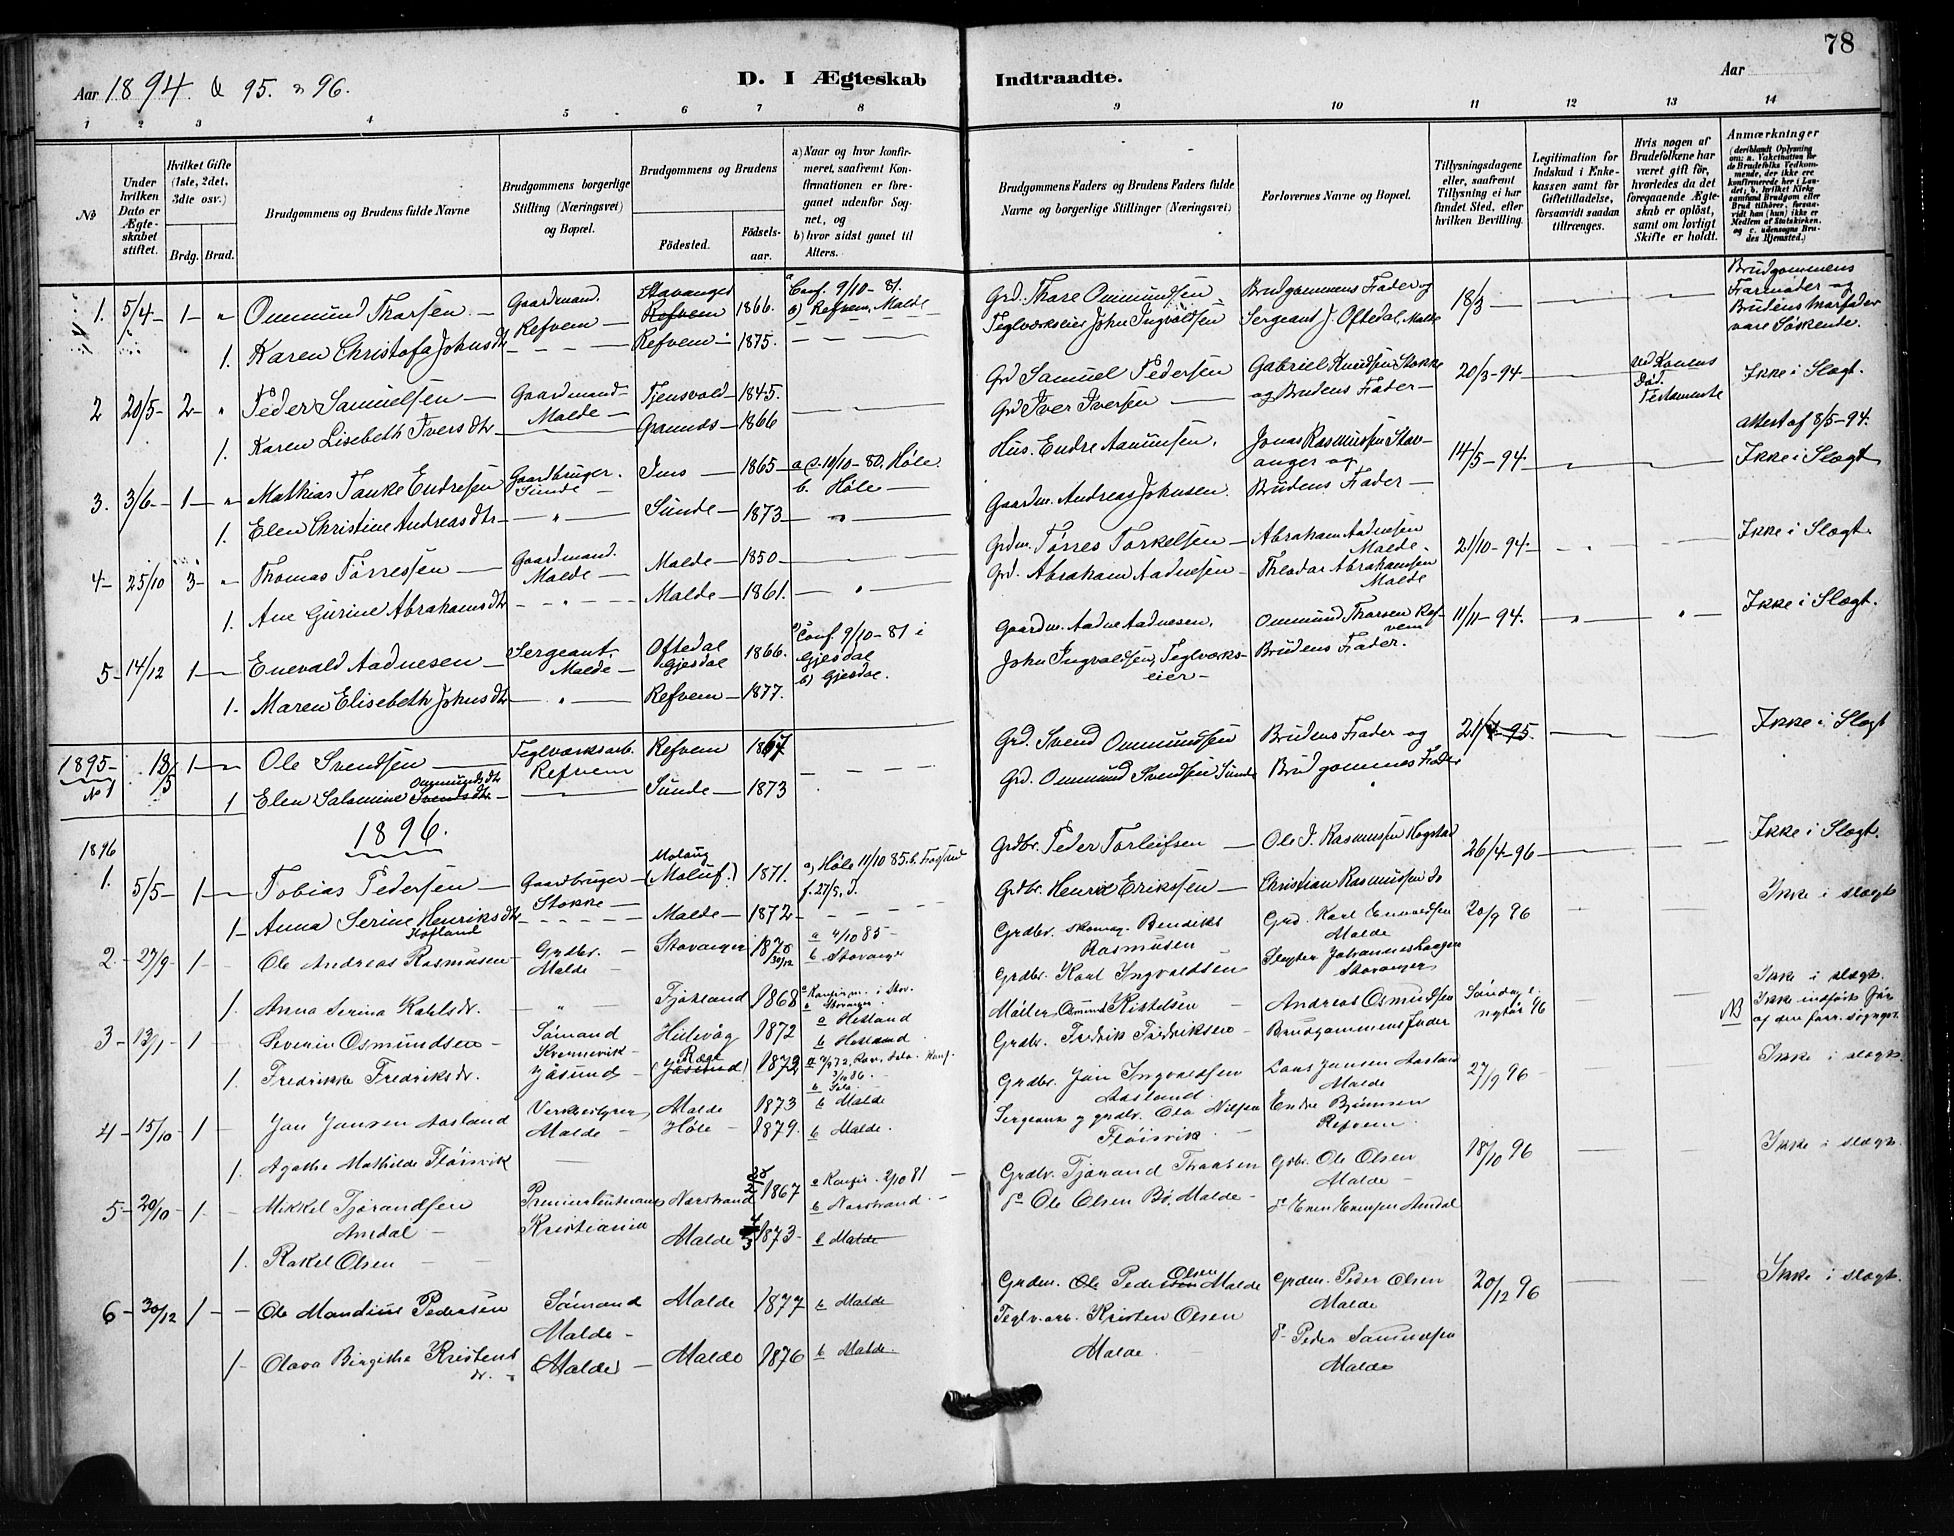 78
Aar 1894 & 95. & 96.
D. I Ægteskab Indtraadte.
Aar
1 2 3 4 5 6 7 8 9 10 11 12 13 14
No
Under hvilken Dato er Ægteskabet stiftet.
Hvilket Gifte (1ste, 2det, 3die osv.)
Brdg. Brud.
Brudgommens og Brudens fulde Navne
Brudgommens borgerlige Stilling (Næringsvei) og Bopæl.
Brudgommens og Brudens
Fødested.
Fødselsaar.
a) Naar og hvor konfirmeret, saafremt Konfirmationen er foregaaet udenfor Sognet, og
b) hvor sidst gaaet til Alters.
Brudgommens Faders og Brudens Faders fulde Navne og borgerlige Stillinger (Næringsvei)
Forlovernes Navne og Bopæl.
Tillysningsdagene eller, saafremt Tillysning ei har fundet Sted, efter hvilken Bevilling.
Legitimation for Indskud i Enkekassen samt for Giftetilladelse, forsaavidt saadan tiltrænges.
Hvis nogen af Brudefolkene har været gift før, hvorledes da det foregaaende Ægteskab er opløst, samt om lovligt Skifte er holdt.
Anmærkninger
(deriblandt Oplysning om: a. Vakcination for de Brudefolks Vedkommende, der ikke ere konfirmerede her i Landet; b. hvilket Kirkesamfund Brudgom eller Brud tilhører, forsaavidt han (hun) ikke er Medlem af Statskirken, og c. udensogns Brudes Hjemsted.)
1. 5/4 - 1 - " Ommund Tharsen - Gaardmand. Refvem - Stavanger Refvem 1866. a Conf. 9/10 - 81. b) Refvem, Malde Grd. Thore Ommundsen Brudgommens Fader og 18/3 - Brudgommens Farmoder og
1. Karen Christofa Johnsdtr - Refvem - 1875. Teglværkseier John Ingvaldsen Sergeant J. Oftedal, Malde Brudens Morfader vare Søskende.
2 20/5 - 2 - " Peder Samuelsen - Gaardmand - Malde - Tjensvold - 1845. Grd Samuel Pedersen Gabriel Knudsen Stokke 20/3 - 94 - ved Konens Død. Testamente Ikke i Slægt.
1. Karen Lisebeth Iversdtr - 1866 Grd Iver Iversen - og Brudens Fader - Attest af 8/5 - 94.
3. 3/6 - 1 - " Mathias Tanke Endresen Gaardbruger. Sunde - Ims - 1865 - a C. 10/10 - 80. Høle. b. Høle - Hus. Endre Aanunsen. Jonas Rasmussen Stavanger og 14/5 - 94. Ikke i Slægt
1. Elen Christine Andreasdtr - " - Sunde - 1873 - " - Gaardm. Andreas Johnsen. Brudens Fader -
4 - 25/10 3 - " Thomas Tørressen - Gaardmand. Malde - Malde - 1850 - Grdm. Tørres Torkelsen - Abraham Aadnesen Malde - 21/10 - 94 - Ikke i Slægt.
1. Ane Gurine Abrahamsdtr - " - Malde - 1861. - " - Grd. Abraham Aadnesen - Theodor Abrahamsen Malde
5 - 14/12 1 - Enevald Aadnesen - Sergeant. Malde - Oftedal Gjesdal 1866. a) Conf. 9/10 - 81 i Gjesdal b) Gjesdal. Gaardm. Aadne Aadnesen. Ommund Tharsen Refvem 11/11 - 94. " Ikke i Slægt.
1 - Maren Elisebeth Johnsdtr - " - Refvem - 1877. John Ingvaldsen, Teglværkseier - Brudens Fader.
1895 - No 1 18/5 1 - Ole Svendsen Teglværksarb. Refvem Refvem 1867 Grd. Svend Ommundsen Brudens Fader og 21/4 - 95. Ikke i Slægt
1 Elen Salomine Ommundsdtr Svendsdtr - Sunde - 1873 Grd. Ommund Svendsen Sunde Brudgommes Fader
1896.
1896 1. 5/5 - 1 - Tobias Pedersen - Gaardbruger - Stokke - Molaug (Moluf.) 1871. a) Høle 11/10 85. b. f. 27/5. d. Grdbr. Peder Torleifsen - Ole I. Rasmussen Hogstad 26/4 - 96 - Ikke i Slægt.
1 - Anna Serine Henriksdtr - Malde - 1872 - Grdbr. Henrik Erikssen - Christian Rasmussen do
2. - 27/9 - 1 - Ole Andreas Rasmusen - Grdbr. Malde - Stavanger 30/12 a 4/10 85 - b Stavanger Grdbr. skomag. Bendiks Rasmusen Grd. Karl Enevaldsen Malde 20/9 96 Ikke i slægt
1. Anna Serina Kahlsdr. - " - Tjøsland 1868 a Konfirm. i Stav. b Stavanger. Grdbr. Karl Ingvaldsen Slagter Johannes Haagen Stavanger
3 - 13/1 - 1 - Severin Osmundsen - Sømand Kvernevik - Hillevåg 1872 a Hetland b Hetland. Møller Osmund Kittelsen - Andreas Osmundsen Søndag e. nytår 96 NB Ikke i slægt. Ikke indført før af den forr. sogngpr.
1. Fredrikke Fredriksdr. Jåsund - Rege (Jåsund) 1872 b Sola. - Grdbr. Fredrik Fredriksen - Brudgommens Fader
4 - 15/10 - 1 - Jan Jansen Aasland Malde - Malde 1873 b Malde Grdbr. Jan Ingvaldsen Aasland Lars Jansen Aasland Malde 27/9 96 Ikke i slægt.
1. Agatha Mathilde Fløisvik - Høle - 1879. b Malde. Sergeant g grdbr. Ola Nilsen Fløisvik - Endre Bjørnsen Refvem.
5 - 20/10 - 1 - Mikkel Tjørandsen Amdal - Premierløitnant Kristiania Narstrand 1867 a Konfir. 2/10 81 b Narstrand. - Grdbr. Tjørand Thorsen Grdbr. Ole Olsen Malde - 18/10 96 Ikke i slægt.
1. Rakel Olsen - Malde 1873 - b Malde do Ole Olsen Bø, Malde - do Enen Amdal
6 - 30/12 1 - Ole Mandius Pedersen Sømand Malde - Malde 1877 b Malde Grdm. Ole Pedersen Olsen Malde Grdm. Peder Olsen Malde 20/12 96 Ikke i slægt.
1 - Olava Birgitha Kristensdr. - (Malde) - Malde 1876 b Malde. Teglv. arb. Kristen Olsen Malde do Peder Samuelsen Malde